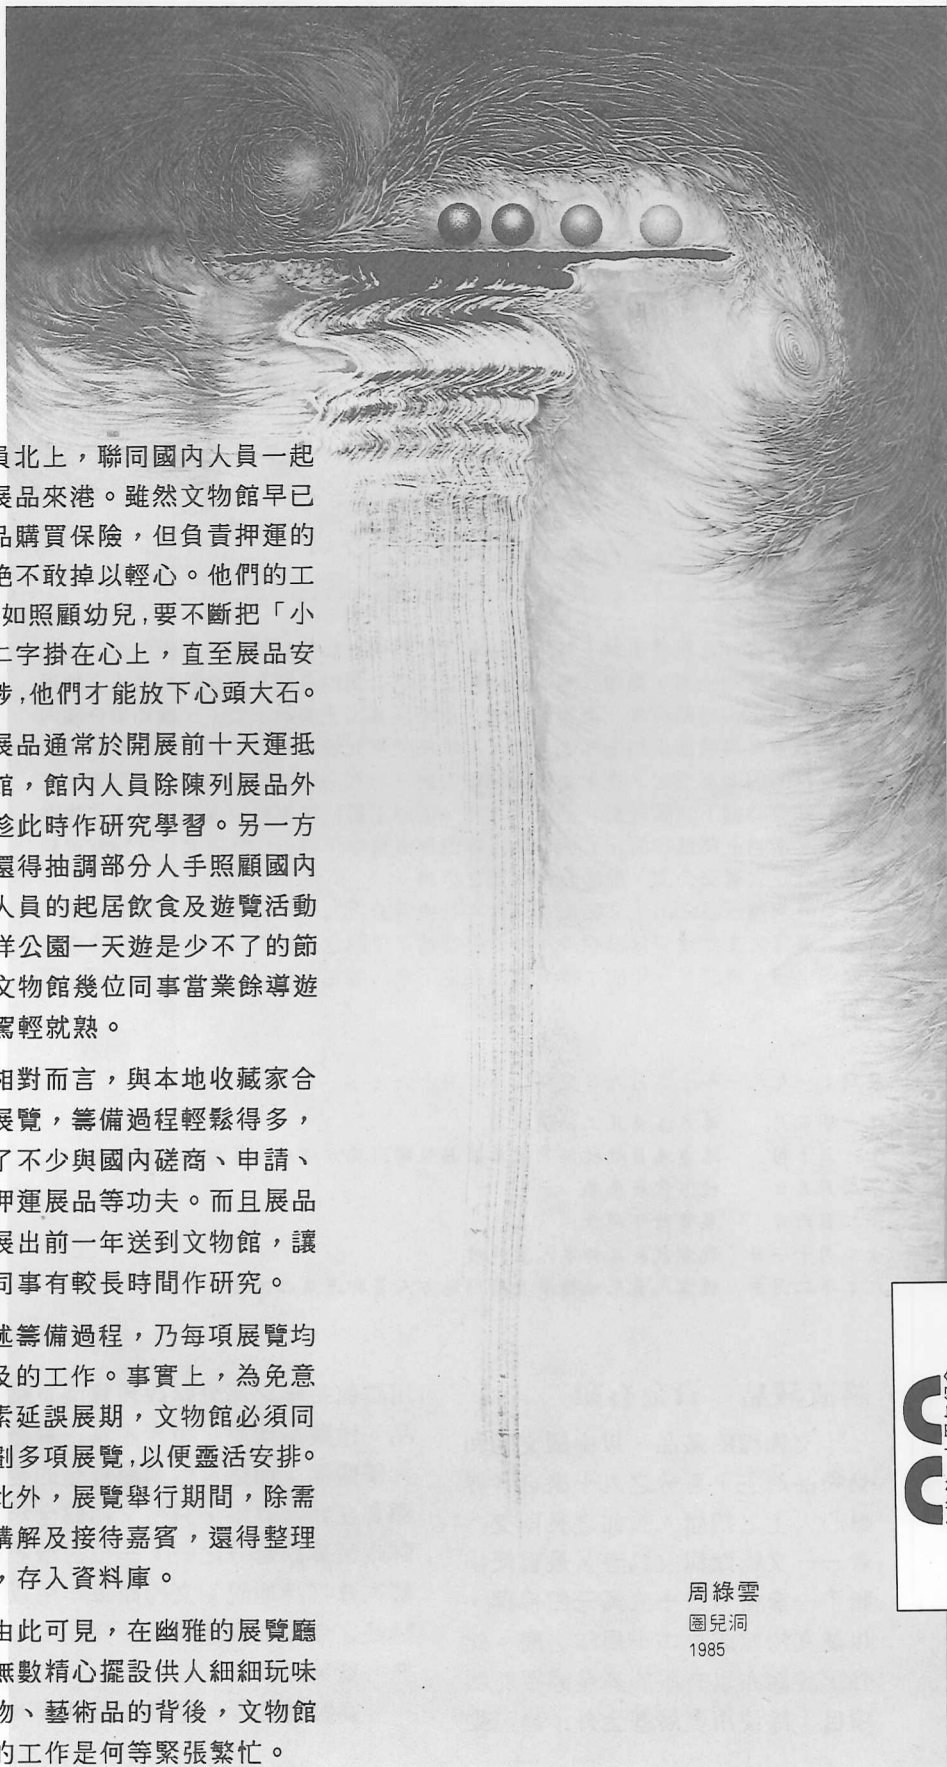 員北上，聯同國內人員一起
展品來港。雖然文物館早已
品購買保險，但負責押運的
絶不敢掉以輕心。他們的工
如照顧幼兒，要不斷把「小
二字掛在心上，直至展品安
涉，他們才能放下心頭大石。
展品通常於開展前十天運抵
館，館內人員除陳列展品外
趁此時作研究學習。另一方
還得抽調部分人手照顧國內
人員的起居飲食及遊覽活動
洋公園一天遊是少不了的節
文物館幾位同事當業餘導遊
駕輕就熟。
相對而言，與本地收藏家合
展覽，籌備過程輕鬆得多，
了不少與國內磋商、申請、
押運展品等功夫。而且展品
展出前一年送到文物館，讓
同事有較長時間作研究。
述籌備過程，乃每項展覽均
及的工作。事實上，為免意
素延誤展期，文物館必須同
劃多項展覽，以便靈活安排。
此外，展覽舉行期間，除需
講解及接待嘉賓，還得整理
，存入資料庫。
由此可見，在幽雅的展覽廳
無數精心擺設供人細細玩味
物、藝術品的背後，文物館
的工作是何等緊張繁忙。
周綠雲
圈兒洞
1985